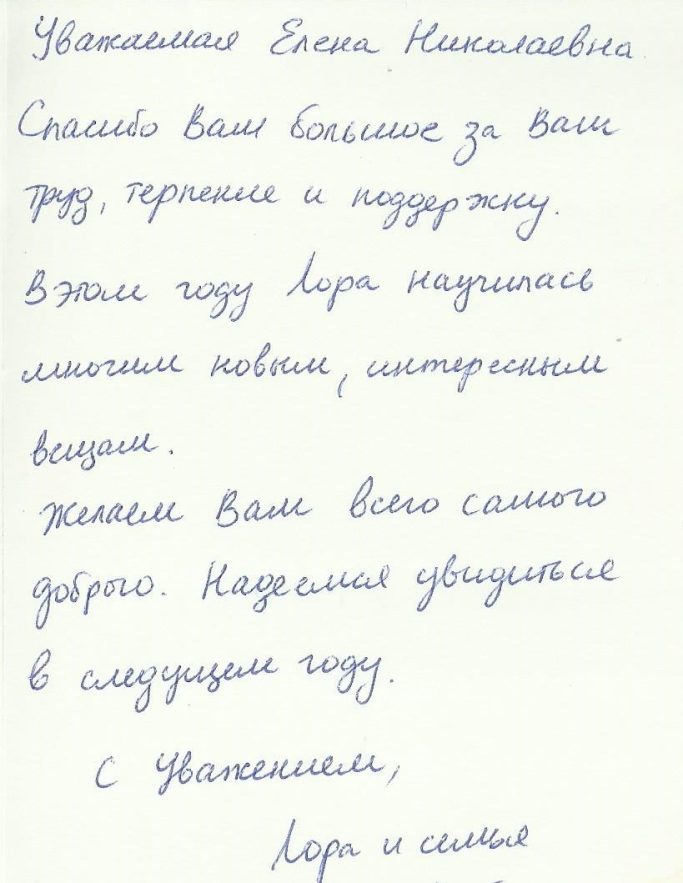 Уважаемая Елена Николаевна
Спасибо Вам большое за Ваш
труд, терпение и поддержку.
В этом году Лора научилась
многим новым, интересным
вещам.
Желаем Вам всего самого
доброго. Надеемся увидиться
в следущем году.
С Уважением,
Лора и семья